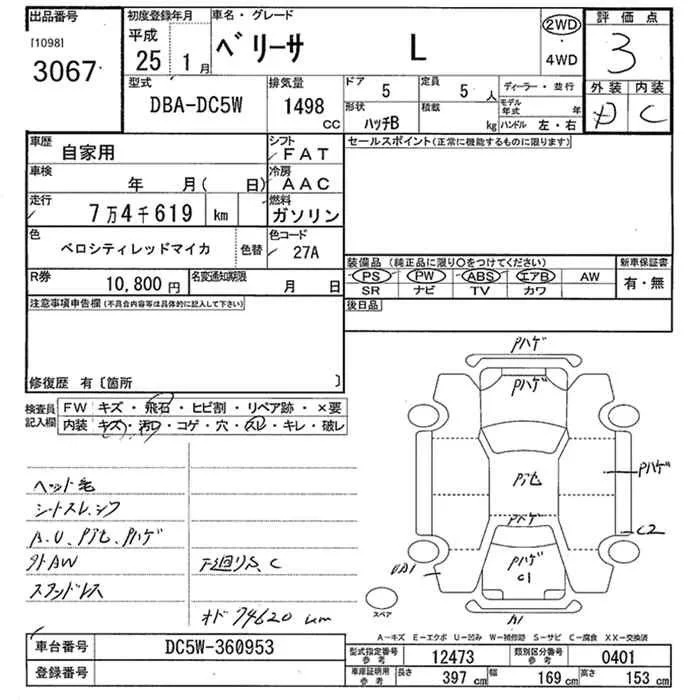 出品番号
[1098]
3067
初度登録年月
平成
25 1月
車名・グレード
ベリーサ L
2WD
・
4WD
評価点
3
外装 内装
D C
型式
DBA-DC5W
排気量
1498
CC
ドア 5
定員 5 人
形状
ハッチB
積載 kg
ディーラー・並行
モデル年式 年
ハンドル 左・右
車歴
自家用
シフト
FAT
車検
年 月( 日)
冷房
AAC
走行
7万4千619 km
燃料
ガソリン
色
ベロシティレッドマイカ
色替
色コード
27A
R券
10,800円
名変通知期限
月 日
セールスポイント(正常に機能するものに限ります)
装備品 (純正品に限り○をつけてください)
PS PW ABS エアB AW
SR ナビ TV カワ
新車保証書
有・無
後日品
注意事項申告欄(不具合内容等は具体的に記入して下さい)
修復歴 有〔箇所 〕
検査員記入欄
FW キズ・飛石・ヒビ割・リペア跡・×要
内装 キズ・汚れ・コゲ・穴・スレ・キレ・破レ
ヘッド毛
シートスレ、シワ
A、U、Pハゲ
外AW
スタッドレス
下廻りS、C
オド 74620 km
Pハゲ
Pハゲ
Pハゲ
Pハゲ
C2
Pハゲ
C1
UA1
A1
スペア
A-キズ E-エクボ U-凹み W-補修跡 S-サビ C-腐食 XX-交換済
車台番号
DC5W-360953
登録番号
型式指定番号
参考
12473
類別区分番号
参考
0401
車庫証明用
参考
長さ 397 cm
幅 169 cm
高さ 153 cm